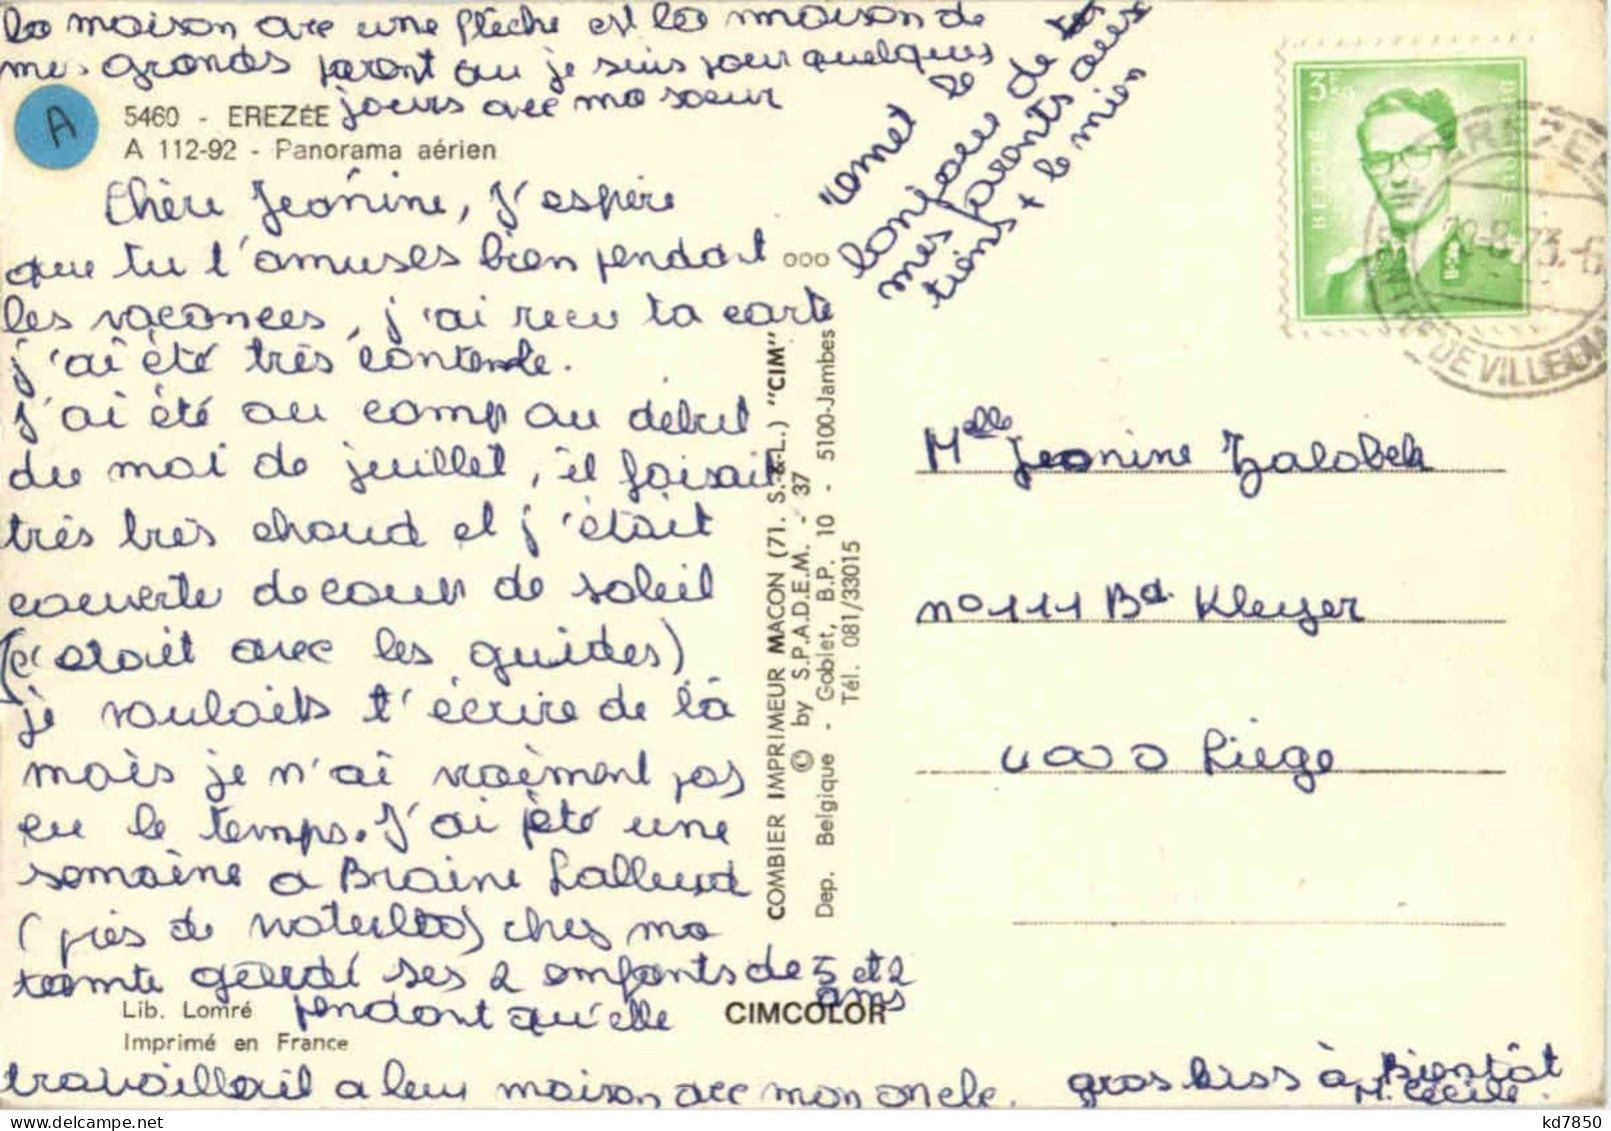 la maison avec une flèche est la maison de
mes grands parent ou je suis pour quelques
jours avec ma soeur
A
5460 - EREZÉE
A 112-92 - Panorama aérien
Chère Jeanine, J'espère
que tu t'amuses bien pendant
les vacances, j'ai recu ta carte
j'ai été très contente.
J'ai été au camp au début
du moi de juillet, il faisait
très très chaud et j'était
couverte de coup de soleil
(c'était avec les guides)
je voulaits t'écrire de là
mais je n'ai vraiment pas
eu le temps. J'ai été une
semaine a Braine Lalleud
(près de Waterloo) chez ma
tante gardé ses 2 enfants de 5 et 2
ans
pendant qu'elle
travaillait a leur maison avec mon oncle.
gros biss à Bientôt
M. Cécile.
Lib. Lomré
Imprimé en France
CIMCOLOR
ooo
bonjour de
mes parants aux
tiens + le mien
COMBIER IMPRIMEUR MACON (71. S.-&-L.) "CIM"
© by S.P.A.D.E.M. - 37
Dep. Belgique - Goblet, B.P. 10 - 5100-Jambes
Tél. 081/33015
3F50
BELGIE
BELGIQUE
EREZEE
-8.73.-6
DE VILLE
Melle Jeanine Zalobek
n° 111 Bd. Kleyer
4000 Liège
kd7850